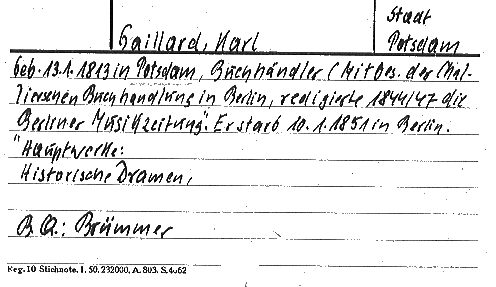 Stadt
Gaillard, Karl
Potsdam
Geb. 13.1.1813 in Potsdam, Buchhändler (Mitbes. der Chal-
lierschen Buchhandlung in Berlin, redigierte 1844/47 die
Berliner Musikzeitung". Er starb 10.1.1851 in Berlin.
"Hauptwerke:
Historische Dramen,
B.Q.: Brümmer
Reg. 10 Stichnote. I. 50. 232000. A. 803. S. 4.62